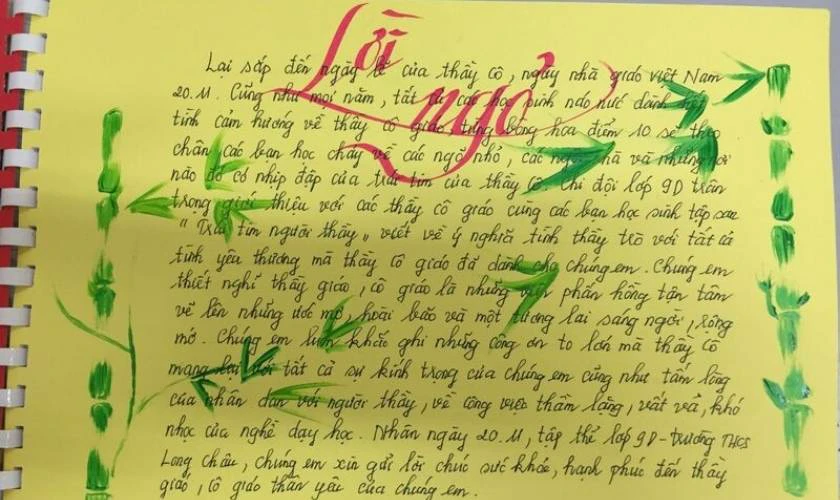 Lời
ngỏ
Lại sắp đến ngày lễ của thầy cô, ngày nhà giáo việt Nam
20.11. Cũng như mọi năm, tất cả các học sinh náo nức dành hết
tình cảm hướng về thầy cô giáo từng bông hoa điểm 10 sẽ theo
chân các bạn học chạy về các ngõ nhỏ, các ngôi nhà và những nơi
nào đó có nhịp đập của trái tim của thầy cô. Chi đội lớp 9D trân
trọng giới thiệu với các thầy cô giáo cùng các bạn học sinh tập san
"Trái tim người thầy" viết về ý nghĩa tình thầy trò với tất cả
tình yêu thương mà thầy cô giáo đã dành cho chúng em. Chúng em
thiết nghĩ thầy giáo, cô giáo là những viên phấn hồng tận tâm
vẽ lên những ước mơ, hoài bão và một tương lai sáng ngời, rộng
mở. Chúng em luôn khắc ghi những công ơn to lớn mà thầy cô
mang lại với tất cả sự kính trọng của chúng em cũng như tấm lòng
của nhân dân với người thầy, về công việc thầm lặng, vất vả, khó
nhọc của nghề dạy học. Nhân ngày 20.11, tập thể lớp 9D - trường THCS
Long Châu, chúng em xin gửi lời chúc sức khỏe, hạnh phúc đến thầy
giáo, cô giáo thân yêu của chúng em.